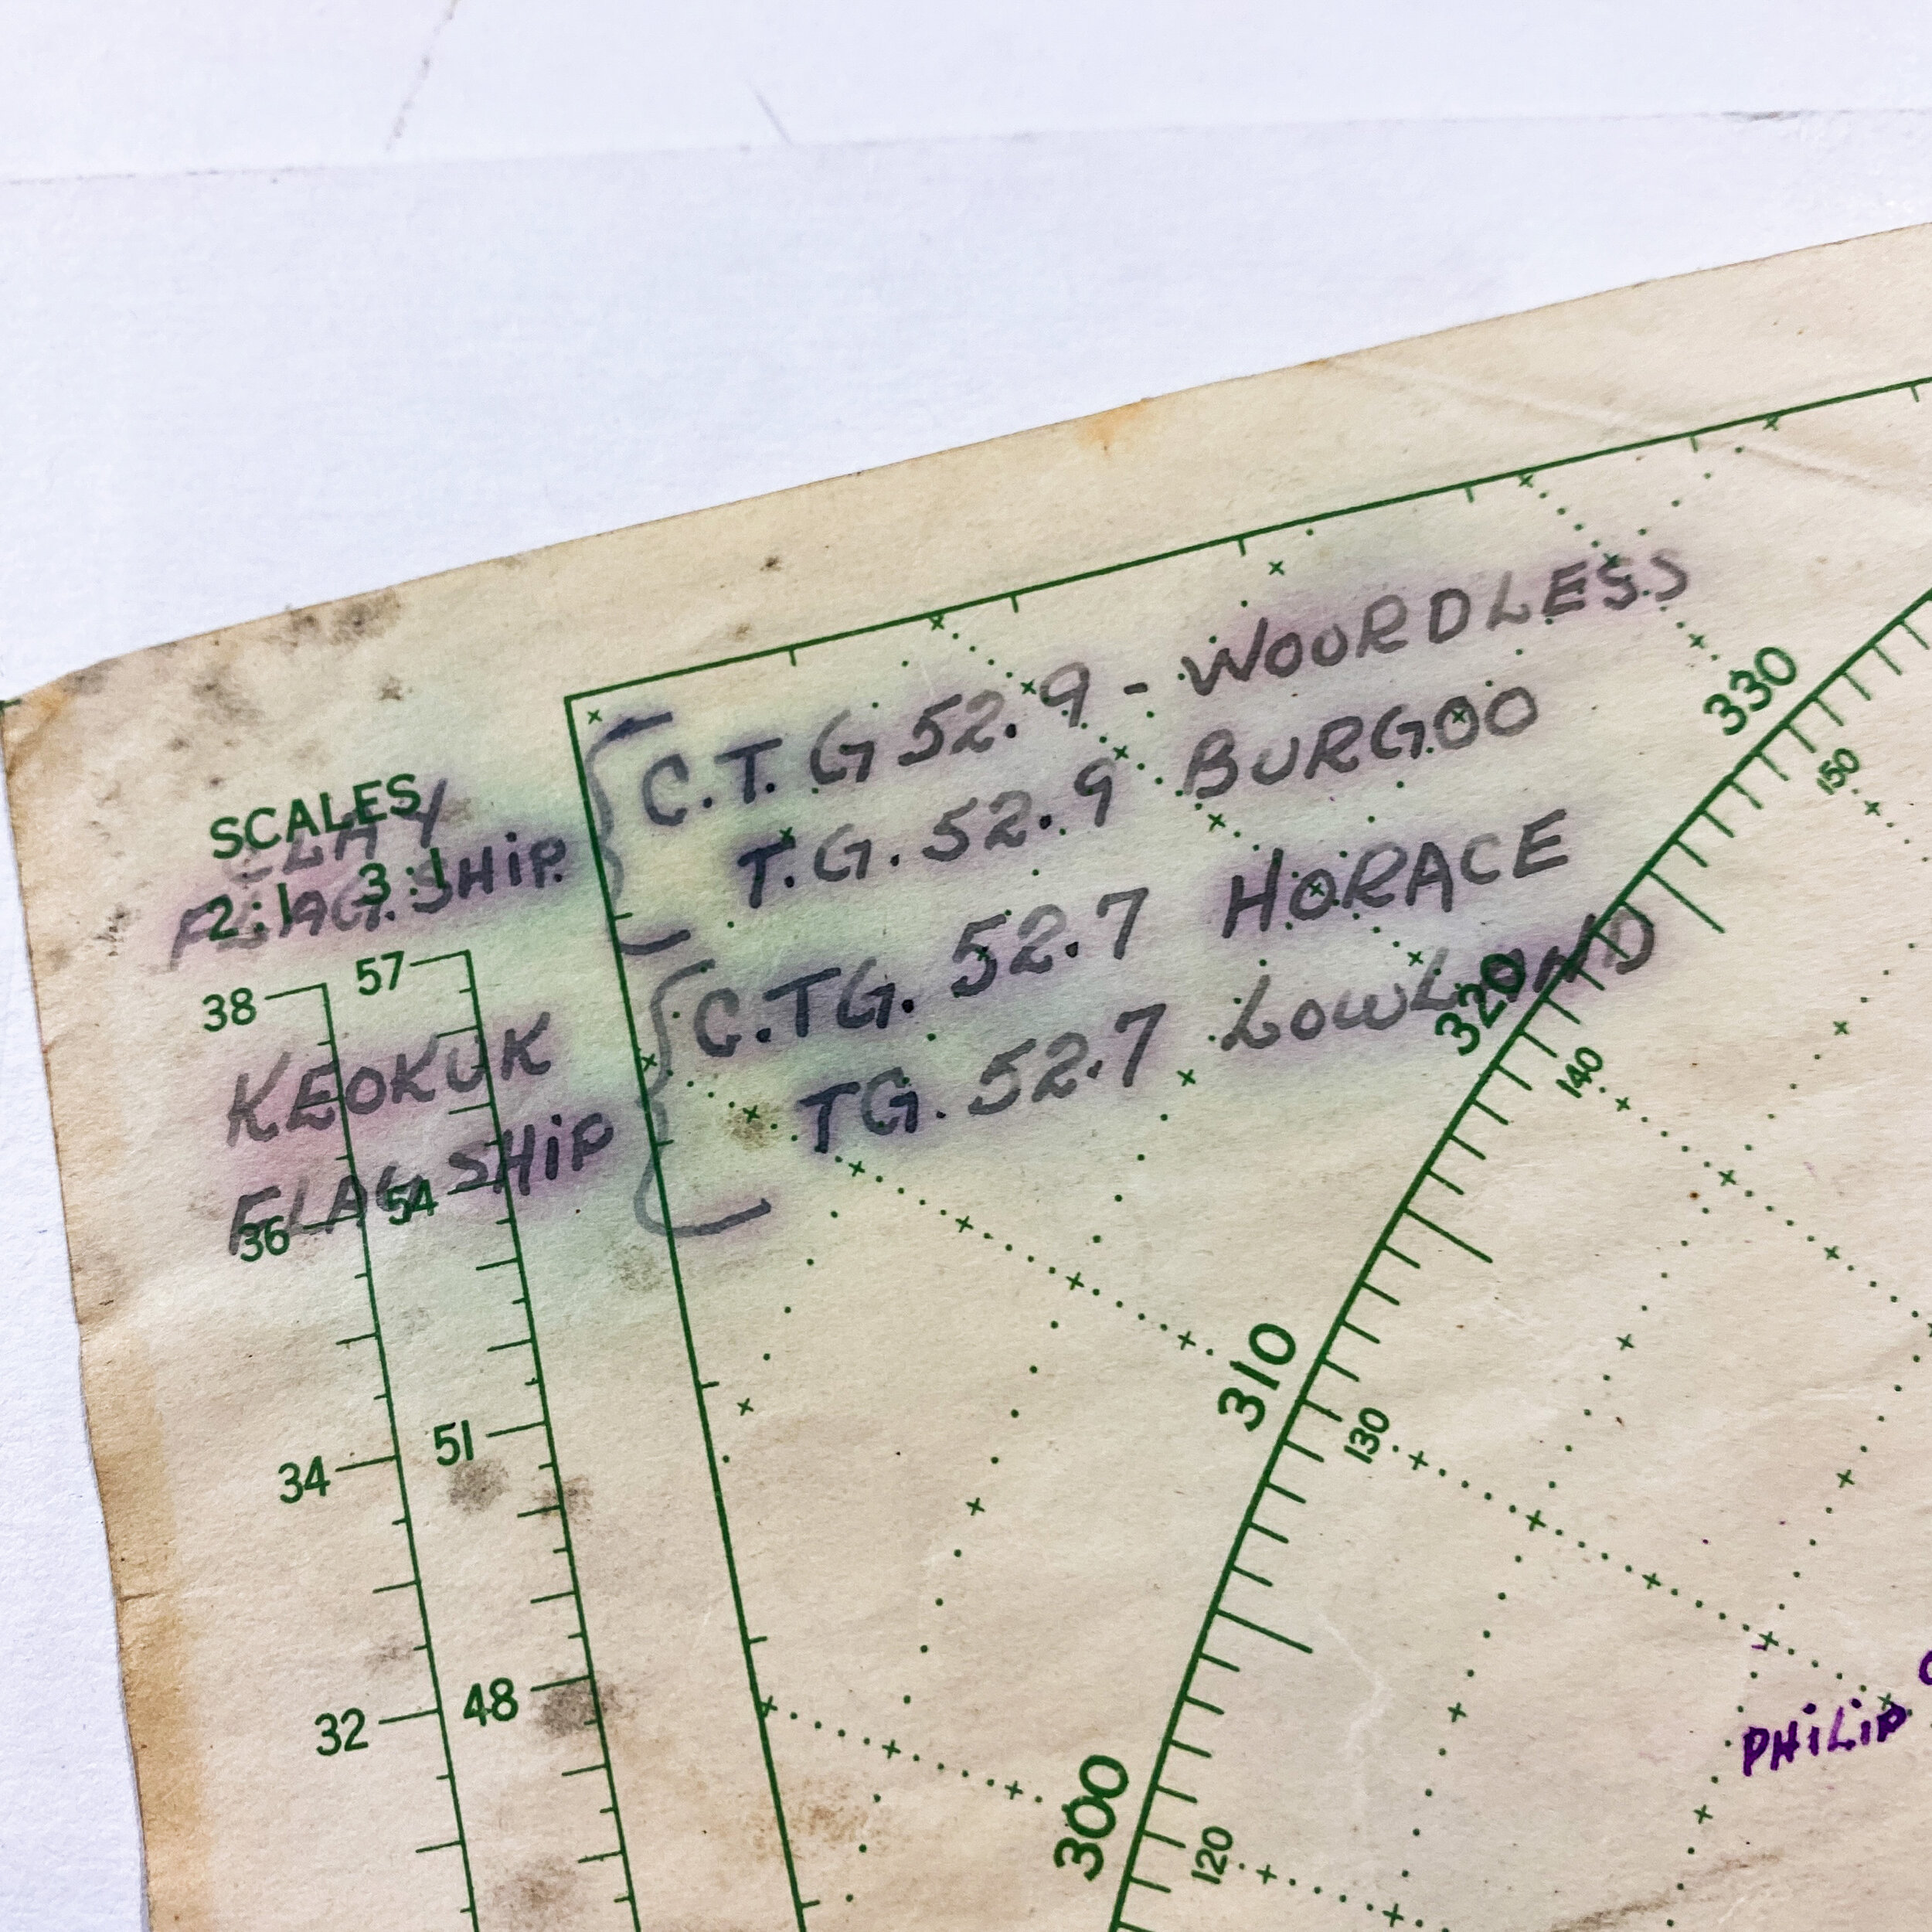 C.T.G 52.9 - WOURDLESS
T.G. 52.9 BURGOO
C.TG. 52.7 HORACE
TG. 52.7 LOWLAND
SCALES
CLAY
FLAG.SHIP.
2:1 3:1
38 57
KEOKUK
FLAG SHIP
36 54
34 51
32 48
330
320
310
300
150
140
130
120
PHILIP